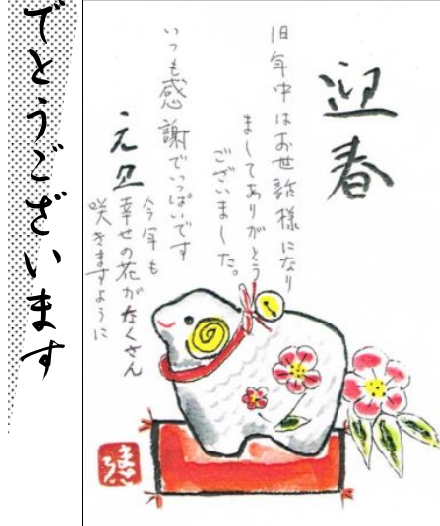 迎春
旧年中はお世話様になり
ましてありがとう
ございました。
いつも感謝でいっぱいです
今年も
幸せの花がたくさん
咲きますように
元旦
でとうございます